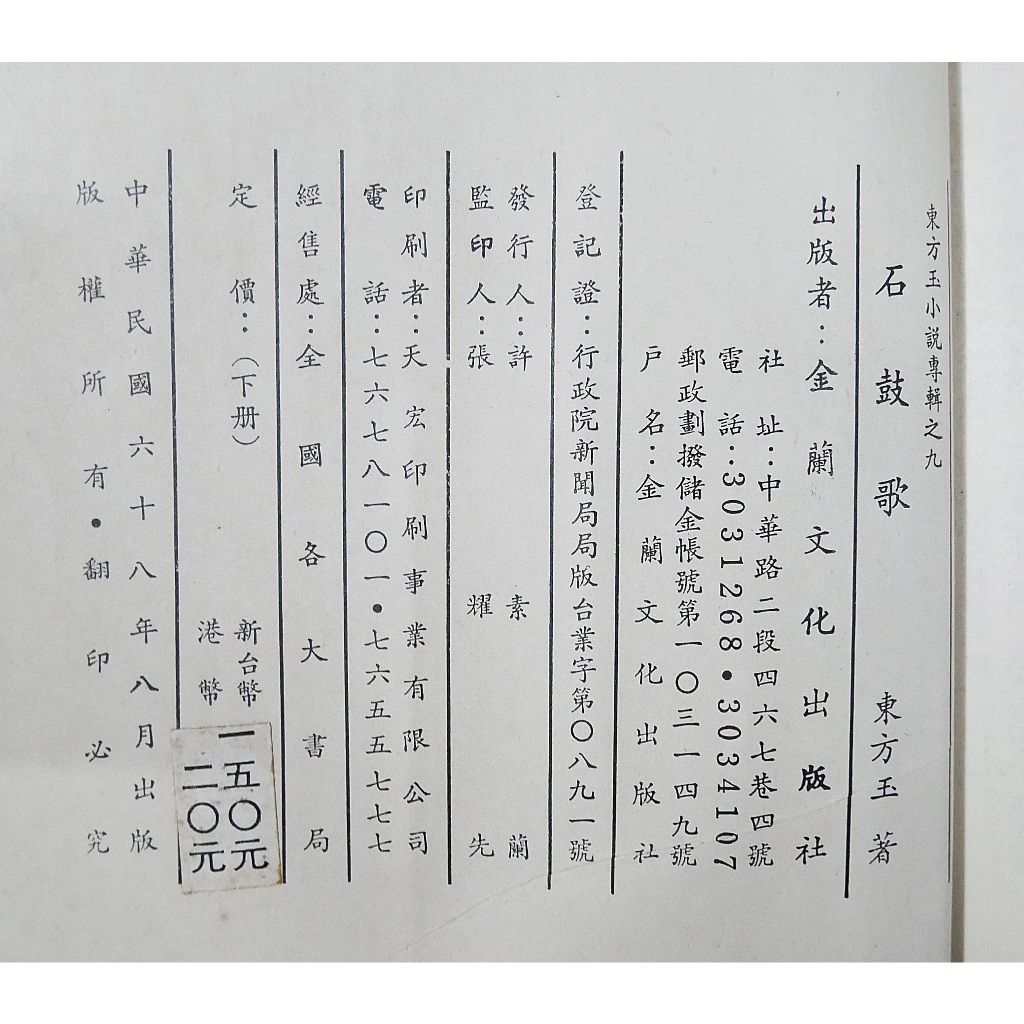 東方玉小說專輯之九
石鼓歌 東方玉著
出版者：金蘭文化出版社
社址：中華路二段四六七巷四號
電話：3031268・3034107
郵政劃撥儲金帳號第一〇三一四九號
戶名：金蘭文化出版社
登記證：行政院新聞局局版台業字第〇八九一號
發行人：許素蘭
監印人：張耀先
印刷者：天宏印刷事業有限公司
電話：七六七八一〇一・七六五五七七七
經售處：全國各大書局
定價：（下册）新台幣一五〇元
港幣二〇元
中華民國六十八年八月出版
版權所有・翻印必究